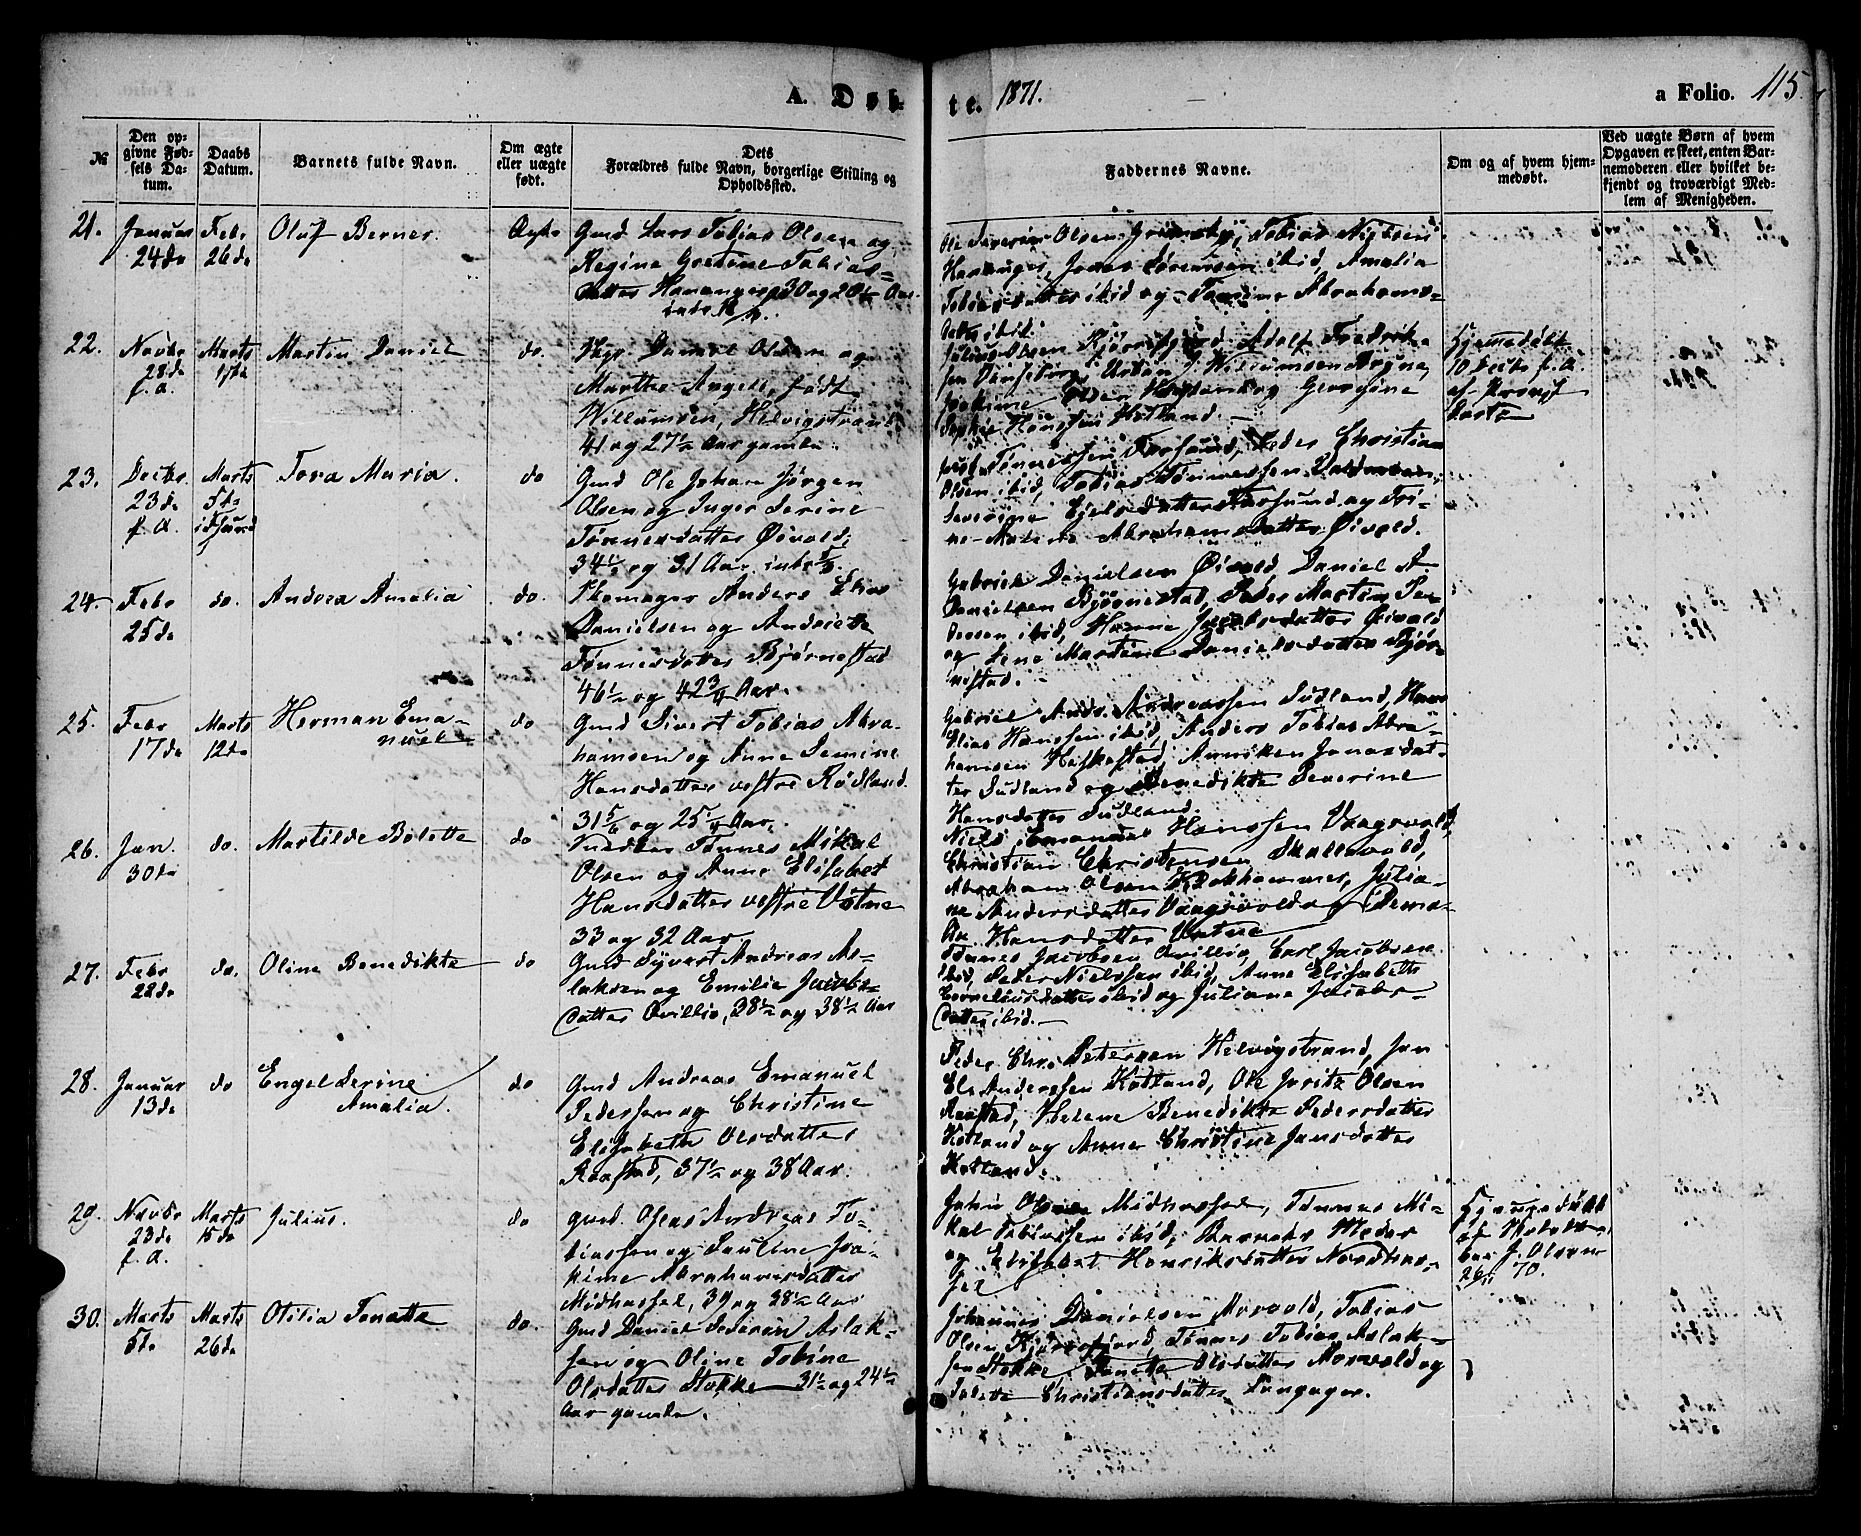 A. Døb-
te. 1871.
a Folio. 115.
№
Den op-
givne Fød-
sels Da-
tum.
Daabs
Datum.
Barnets fulde Navn.
Om ægte
eller uægte
født.
Dets
Forældres fulde Navn, borgerlige Stilling og
Opholdssted.
Faddernes Navne.
Om og af hvem hjem-
medøbt.
Ved uægte Børn af hvem
Opgaven er skeet, enten Bar-
nemoderen eller hvilket be-
kjendt og troværdigt Med-
lem af Menigheden.
21.
Januar
24de
Febr
26de
Oluf Berner.
Ægte
Gmd Lars Tobias Olsen og
Regine Gretine Tobias-
datter Hananger, 30 og 20 Aar.
Ole Severin Olsen Tobias
Hananger, Jonas Sørensen ibid, Amalia
Tobiasdatter ibid og Tomine Abrahams-
datter ibid.
22.
Novbr
28de
f. A.
Marts
1ste
Martin Daniel
do.
Daniel Olsen og
Marthe Angell, født
Willumsen, Helvigstrand
41 og 27½ Aar gamle.
Olsen Kjørrefjord, Adolf Fredrik-
sen J. Willumsen
og Georgine
Sophie Hansen Hatland.
Hjemmedøbt
10 Decbr f. A.
af Provst
23.
Decbr.
23de
f. A.
Marts
5te
Tora Maria.
do
Gmd Ole Johan Jørgen
Olsen og Inger Serine
Tønnesdatter Øivold,
34½ og 31 Aar.
Tønnessen Farsund, Peder Christian
Olsen ibid, Tobias Tønnessen
Severine Ejelsdatter Farsund og Tri-
ne Malene Abrahamsdatter Øivold.
24.
Febr
25de
do.
Andrea Amalia
do.
Skomager Anders Elias
Danielsen og Andriete
Tønnesdatter Bjørnestad
46½ og 42¾ Aar.
Gabriel Danielsen Øivold, Daniel A
Danielsen Bjørnestad, Peder Martin Pe-
dersen ibid, Hanne Jacobsdatter Øivold
og Lene Martine Danielsdatter Bjør-
nestad.
25.
Febr
17de
Marts
12de
Herman Ema-
nuel
do
Gmd Sivert Tobias Abra-
hamsen og Anne Semine
Hansdatter vestre Rødland.
31 5/6 og 25¼ Aar.
Gabriel Andr. Andreassen Sudland, Hans
Elias Hanssen ibid, Anders Tobias Abra-
hamsen Huskestad, Anniken Jonasdat-
ter Sudland og Benedikte Severine
Hansdatter Sudland.
26.
Jan.
30te
do.
Martilde Bolette
do
Tønnes Mikal
Olsen og Anne Elisabet
Hansdatter vestre Vatne
33 og 32 Aar
Niels Emanuel Hanssen Vaagsvold,
Christian Christensen Skallevold,
Abraham Olsen Krakhammer, Julia-
ne Andersdatter Vaagsvold og
Hansdatter Vatne
27.
Febr
22de
do.
Oline Benedikte
do
Gmd Syvert Andreas As-
laksen og Emilie Jacobs-
datter Ovillio, 38½ og 38½ Aar
Tønnes Jacobsen Ovillio, Carl Jacobsen
ibid, Peder Nielssen ibid, Anne Elisabeth
Corneliusdatter ibid og Juliane Jacobs-
datter ibid.
28.
Januar
13de
do
Engel Serine
Amalia.
do
Gmd Andreas Emanuel
Pedersen og Christine
Elisabeth Olsdatter
Raastad, 37½ og 38 Aar.
Peder Chr. Petersen Helvigstrand, Jan
El. Anderssen Kotland, Ole Jørits Olsen
Raastad, Helene Benedikte Pedersdatter
Kotland og Anne Christine Jansdatter
Kotland.
29.
Novbr
23de
f. A.
Marts
15de
Julius.
do
Gmd. Aseas Andreas To-
biassen og Pauline Joa-
kime Abrahamsdatter
Midhassel, 39 og 38½ Aar
John Olsen Midhassel, Tønnes Mi-
kal Tobiassen ibid, Meder
og Elisabet Henriksdatter Nordhas-
sel
Hjemmedøbt
af
J. Olsen
26/11 70.
30.
Marts
5te
Marts
26de
Otilia Tonette
do.
Gmd Daniel Severin Aslak-
sen og Oline Tobine
Olsdatter Stokke 31½ og 24½
Aar gamle.
Johannes Danielsen Morvold, Tobias
Olsen Kjørrefjord, Tønnes Tobias Aslak-
sen Stokke, Tonette Olsdatter Morvold og
Christiansdatter Langager.